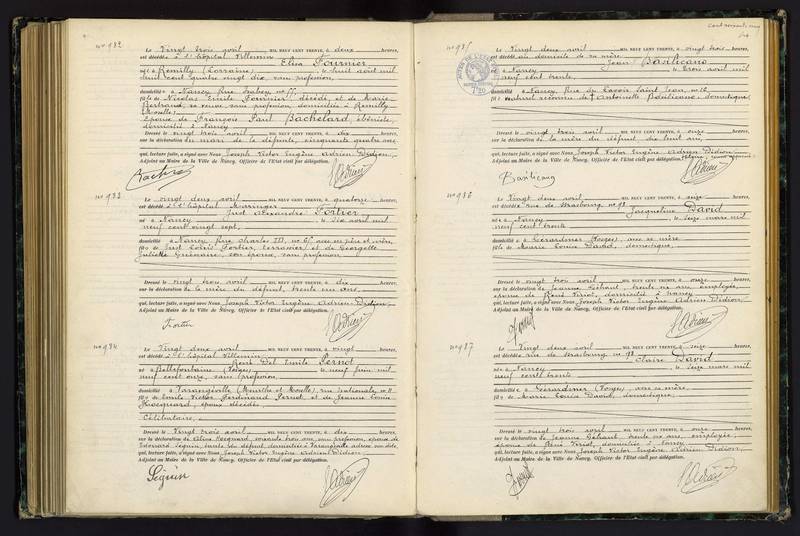 No 932
Le Vingt trois avril MIL NEUF CENT TRENTE, à deux heures,
est décédée à l'hôpital Villemin Elisa Fournier
née à Remilly (Lorraine) le huit avril mil
huit cent quatre vingt dix, sans profession,
domiciliée à Nancy Rue
fille de Nicolas Emile Fournier décédé, et de Marie
Bertrand, sa veuve, sans profession, domiciliée à Remilly
(Moselle)
Epouse de François Paul Bachelard, ébéniste,
domicilié à Nancy
Dressé le vingt trois avril à dix heures,
sur la déclaration du mari de la défunte, cinquante quatre ans,
qui, lecture faite, a signé avec Nous Joseph Victor Eugène Adrien Didion,
Adjoint au Maire de la Ville de Nancy, Officier de l'Etat civil par délégation.
No 933
Le vingt deux avril MIL NEUF CENT TRENTE, à quatorze heures,
est décédé à l'hôpital Maringer
Just Alexandre Fortier
né à Nancy le dix avril mil
neuf cent vingt sept,
domicilié à Nancy, Rue Charles III, avec ses père et mère,
fils de Just Louis Fortier, terrassier et de Georgette
Juliette son épouse, sans profession
Dressé le vingt trois avril à dix heures,
sur la déclaration de la mère du défunt, trente un ans,
qui, lecture faite, a signé avec Nous Joseph Victor Eugène Adrien Didion
Adjoint au Maire de la Ville de Nancy, Officier de l'Etat civil par délégation.
Fortier
No 934
Le Vingt deux avril MIL NEUF CENT TRENTE, à vingt heures,
est décédé à l'hôpital Villemin
René Del Emile Pernot
né à Bellefontaine (Vosges) le neuf juin mil
neuf cent onze, sans profession
domicilié à Varangéville (Meurthe et Moselle), rue Nationale,
fils de Emile Victor Ferdinand Pernot et de Jeanne Louise
Hocquard, époux décédés
Célibataire
Dressé le Vingt trois avril à dix heures,
sur la déclaration de Hocquard, soixante trois ans, sans profession, épouse de
Edouard Séguin, tante du défunt, domiciliée à Varangéville
qui, lecture faite, a signé avec Nous Joseph Victor Eugène Adrien Didion
Adjoint au Maire de la Ville de Nancy, Officier de l'Etat civil par délégation.
Séguin
No 935
Le Vingt deux avril MIL NEUF CENT TRENTE, à vingt trois heures,
est décédé au domicile de sa mère
Jean Basilicano
né à Nancy le trois avril mil
neuf cent trente,
domicilié à Nancy, Rue du Lavoir Saint Jean, no 12
fils naturel reconnu de Antoinette Basilicano, domestique
Dressé le vingt trois avril à onze heures,
sur la déclaration de la mère du défunt,
qui, lecture faite, a signé avec Nous Joseph Victor Eugène Adrien Didion
Adjoint au Maire de la Ville de Nancy, Officier de l'Etat civil par délégation.
Basilicano
No 936
Le Vingt deux avril MIL NEUF CENT TRENTE, à heures,
est décédée rue de Strasbourg no
Jacqueline David
née à Nancy le seize mars mil
neuf cent trente
domiciliée à Gérardmer (Vosges), avec sa mère
fille de Marie Louise David, domestique,
Dressé le vingt trois avril à onze heures,
sur la déclaration de Jeanne trente un ans, employée,
épouse de René domiciliée à Nancy
qui, lecture faite, a signé avec Nous Joseph Victor Eugène Adrien Didion
Adjoint au Maire de la Ville de Nancy, Officier de l'Etat civil par délégation.
No 937
Le Vingt deux avril MIL NEUF CENT TRENTE, à seize heures,
est décédée rue de Strasbourg no
Claire David
née à Nancy le seize mars mil
neuf cent trente
domiciliée à Gérardmer (Vosges), avec sa mère
fille de Marie Louise David, domestique,
Dressé le vingt trois avril à onze heures,
sur la déclaration de Jeanne trente un ans, employée,
épouse de René domiciliée à Nancy
qui, lecture faite, a signé avec Nous Joseph Victor Eugène Adrien Didion
Adjoint au Maire de la Ville de Nancy, Officier de l'Etat civil par délégation.